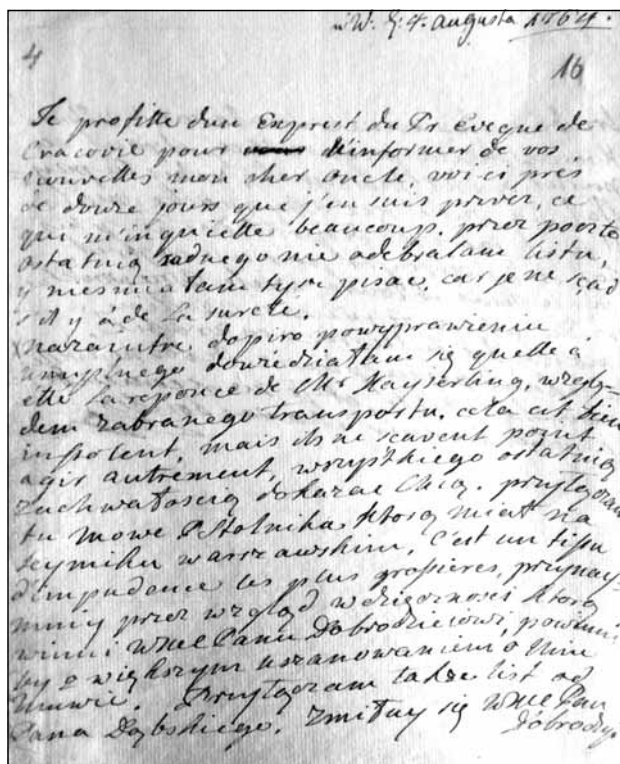 W. S. 4. augusta 1764.
4
16
Je profitte dun Exprest du Pr Eveque de
Cracovie pour m'informer de vos
nouvelles mon cher oncle, voici prés
de douze jours que j'en suis privez, ce
qui m'inquiette beaucoup. przez pocztę
ostatnią żadnego nie odebrałam listu,
y nieśmiałam tyż pisac, car je ne sçad
s'il y à de la sureté.
Nazaiutrz dopiro po wyprawieniu
umyślnego dowiedziałam się quelle à
etté la reponce de Mr Kayserling, wzglę-
dem zabranego transportu. cela est bien
insolent, mais ils ne scavent point
agir autrement, wszystkiego ostatnią
zuchwałoscią dokazac chcą. przyłączam
tu mowe P Stolnika którą miał na
seymiku warszawskim, c'est un tissu
d'impudence les plus grossieres, przynay-
mniy przez wzgląd wdzięcznosci którą
winni WMC Panu Dobrodzieiowi, powinni
by z większym uszanowaniem o Nim
mowic. Przyłączam także list od
Pana Dąbskiego. Zmiłuy się WMC Pan
Dobrodzy